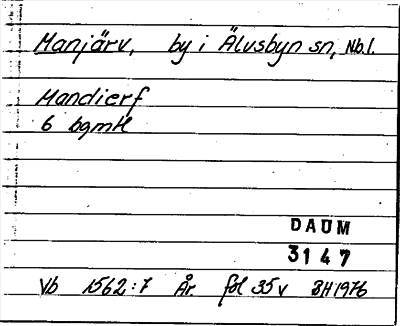 Manjärv, by i Älvsbyn sn, Nb.l.
Mandierf
6 bgmtl
DAUM
3147
Vb 1562:7 År fol 35v BH1976